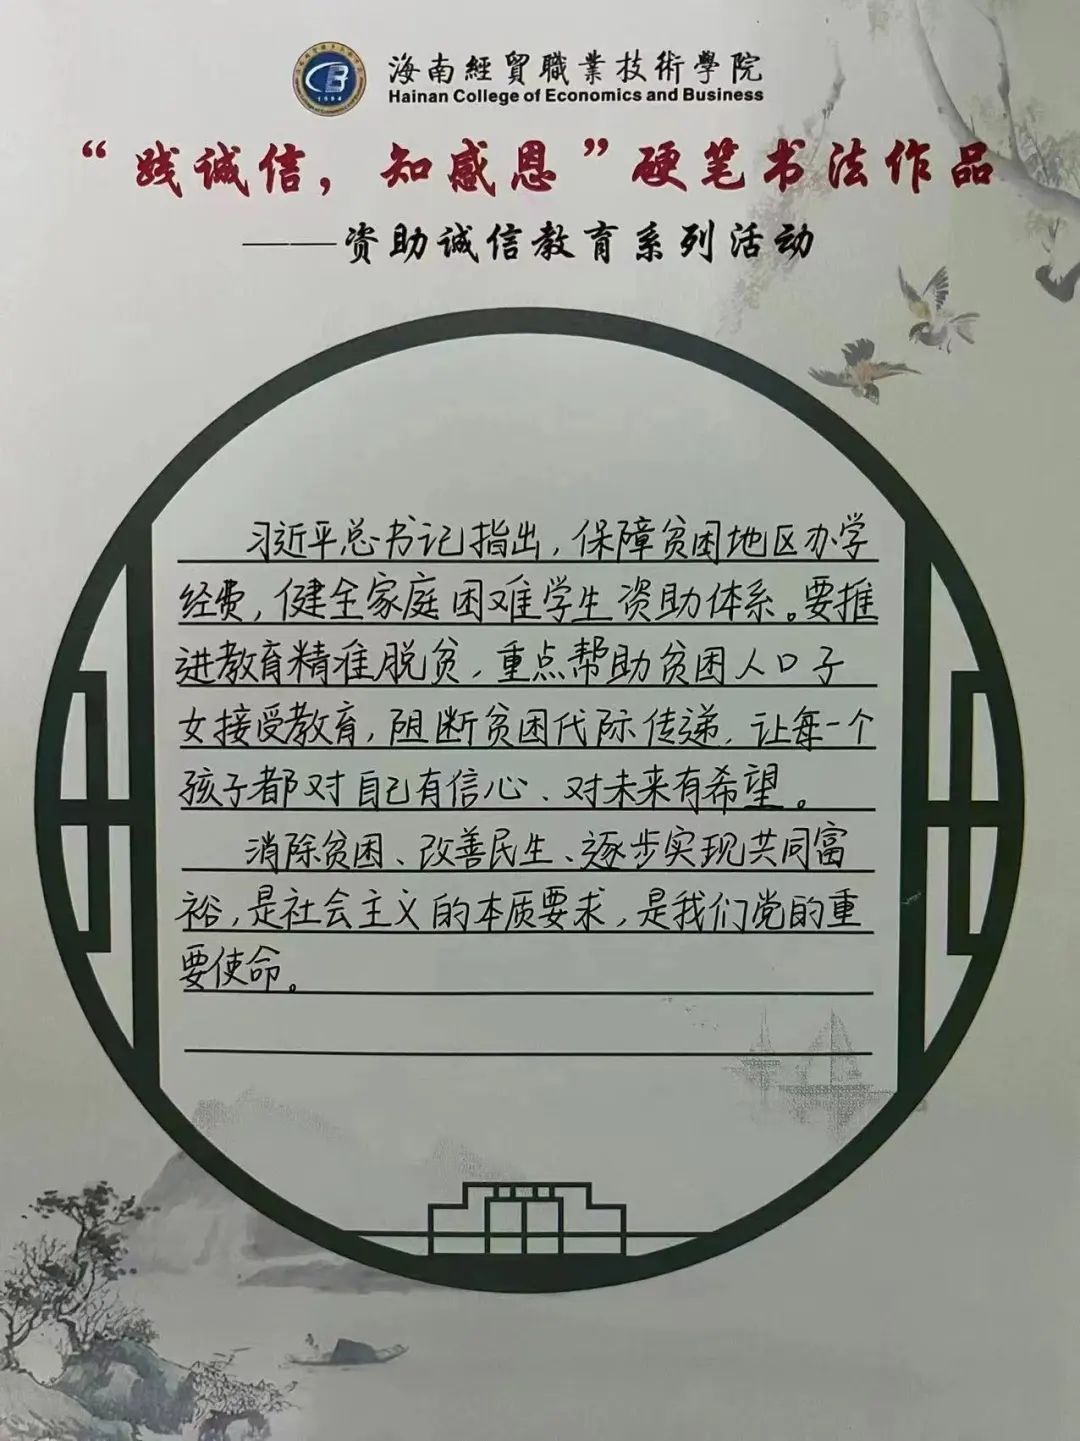 海南經貿職業技術學院
Hainan College of Economics and Business
“践诚信，知感恩”硬笔书法作品
——资助诚信教育系列活动
习近平总书记指出，保障贫困地区办学
经费，健全家庭困难学生资助体系。要推
进教育精准脱贫，重点帮助贫困人口子
女接受教育，阻断贫困代际传递，让每一个
孩子都对自己有信心、对未来有希望。
消除贫困、改善民生、逐步实现共同富
裕，是社会主义的本质要求，是我们党的重
要使命。